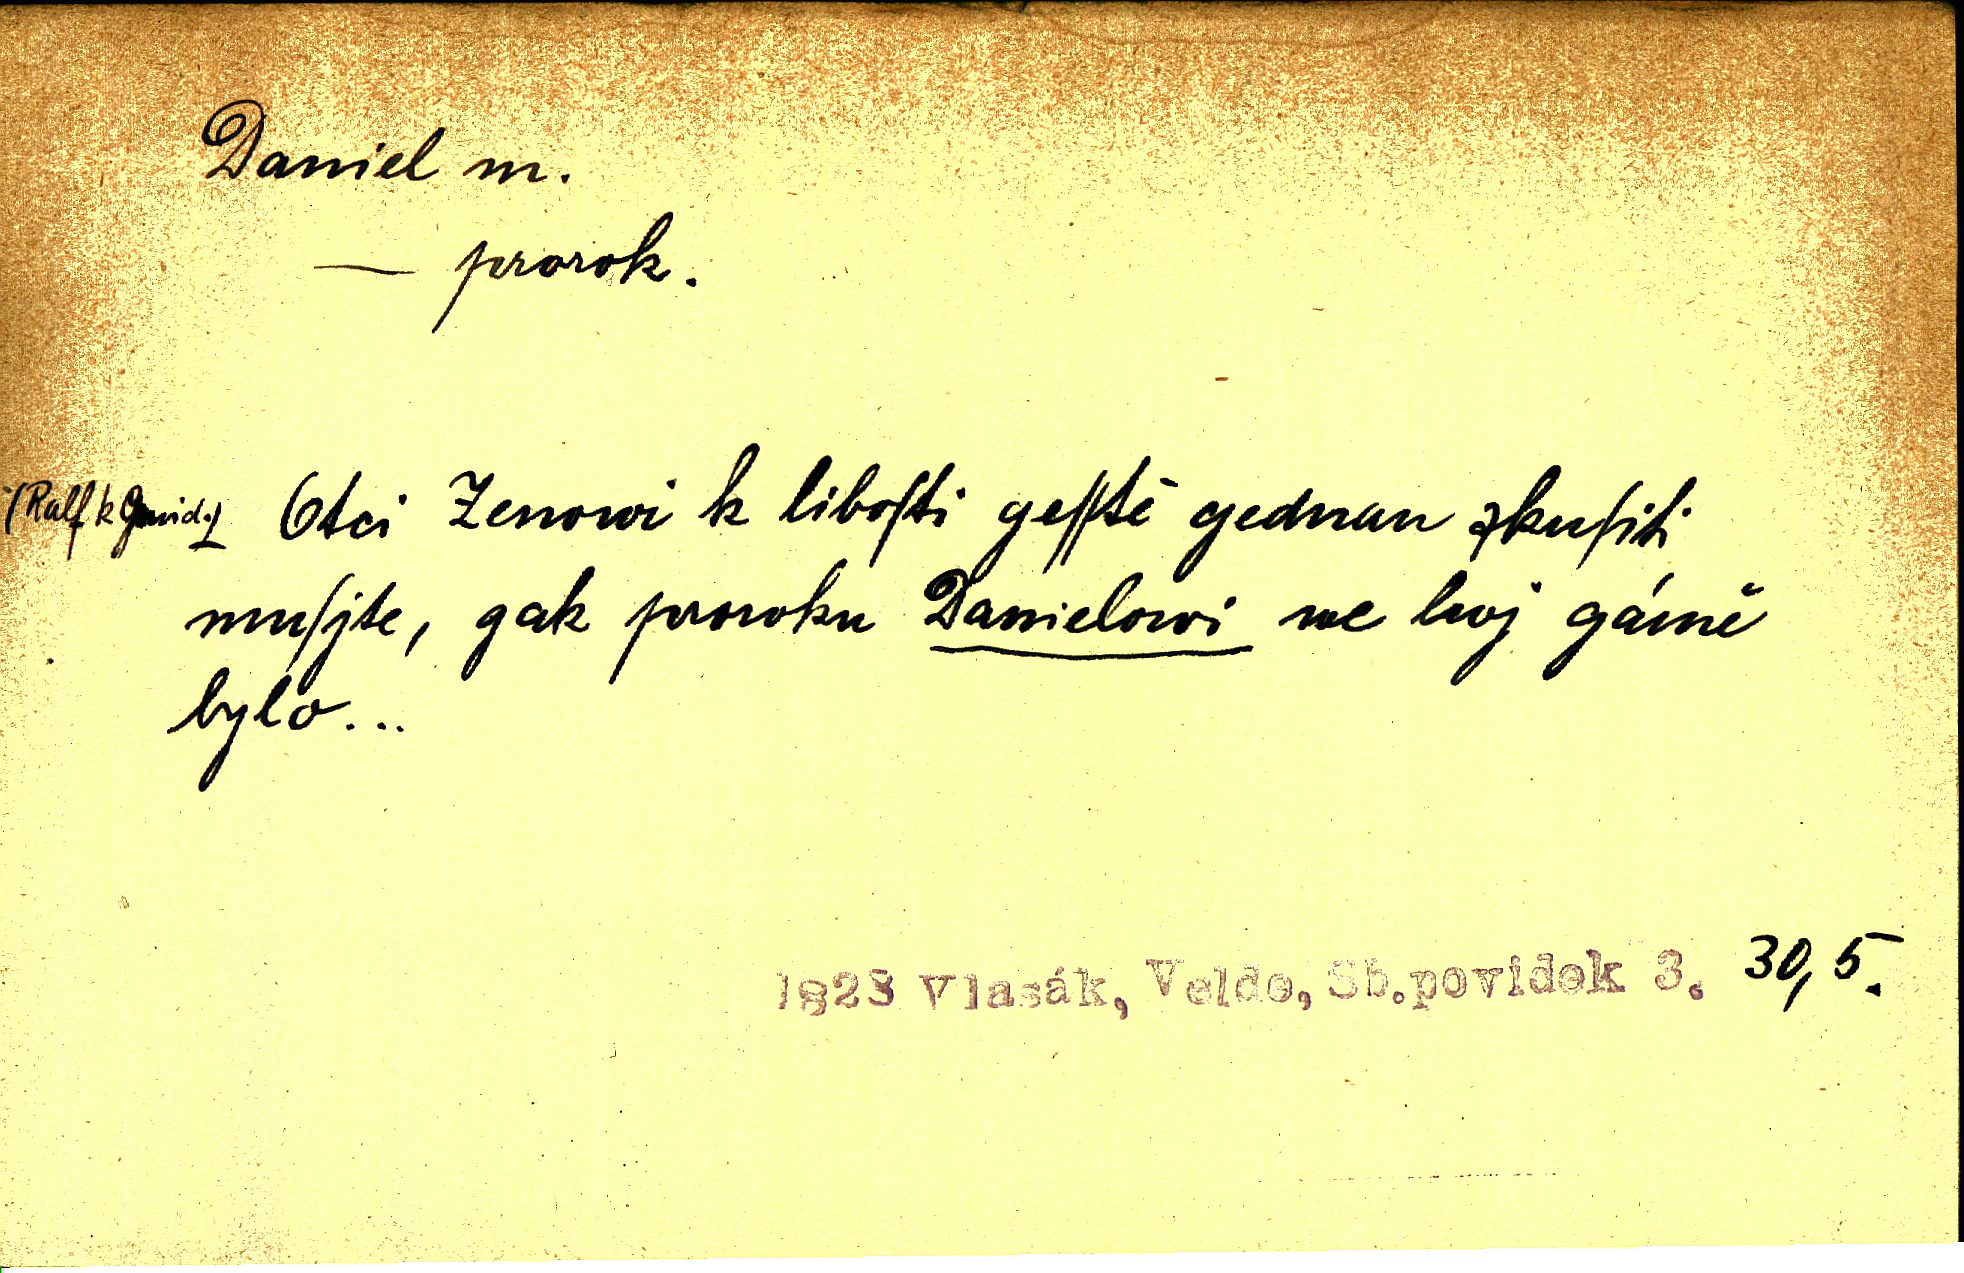 Daniel m.
— prorok.
(Ralf k Guid.) Otci Zenowi k liboſti geſſtě gednau zkuſiti
muſjte, gak proroku Danielowi we lwj gámě
bylo...
1828 Vlasák, Velde, Sb.povídek 3. 30,5.